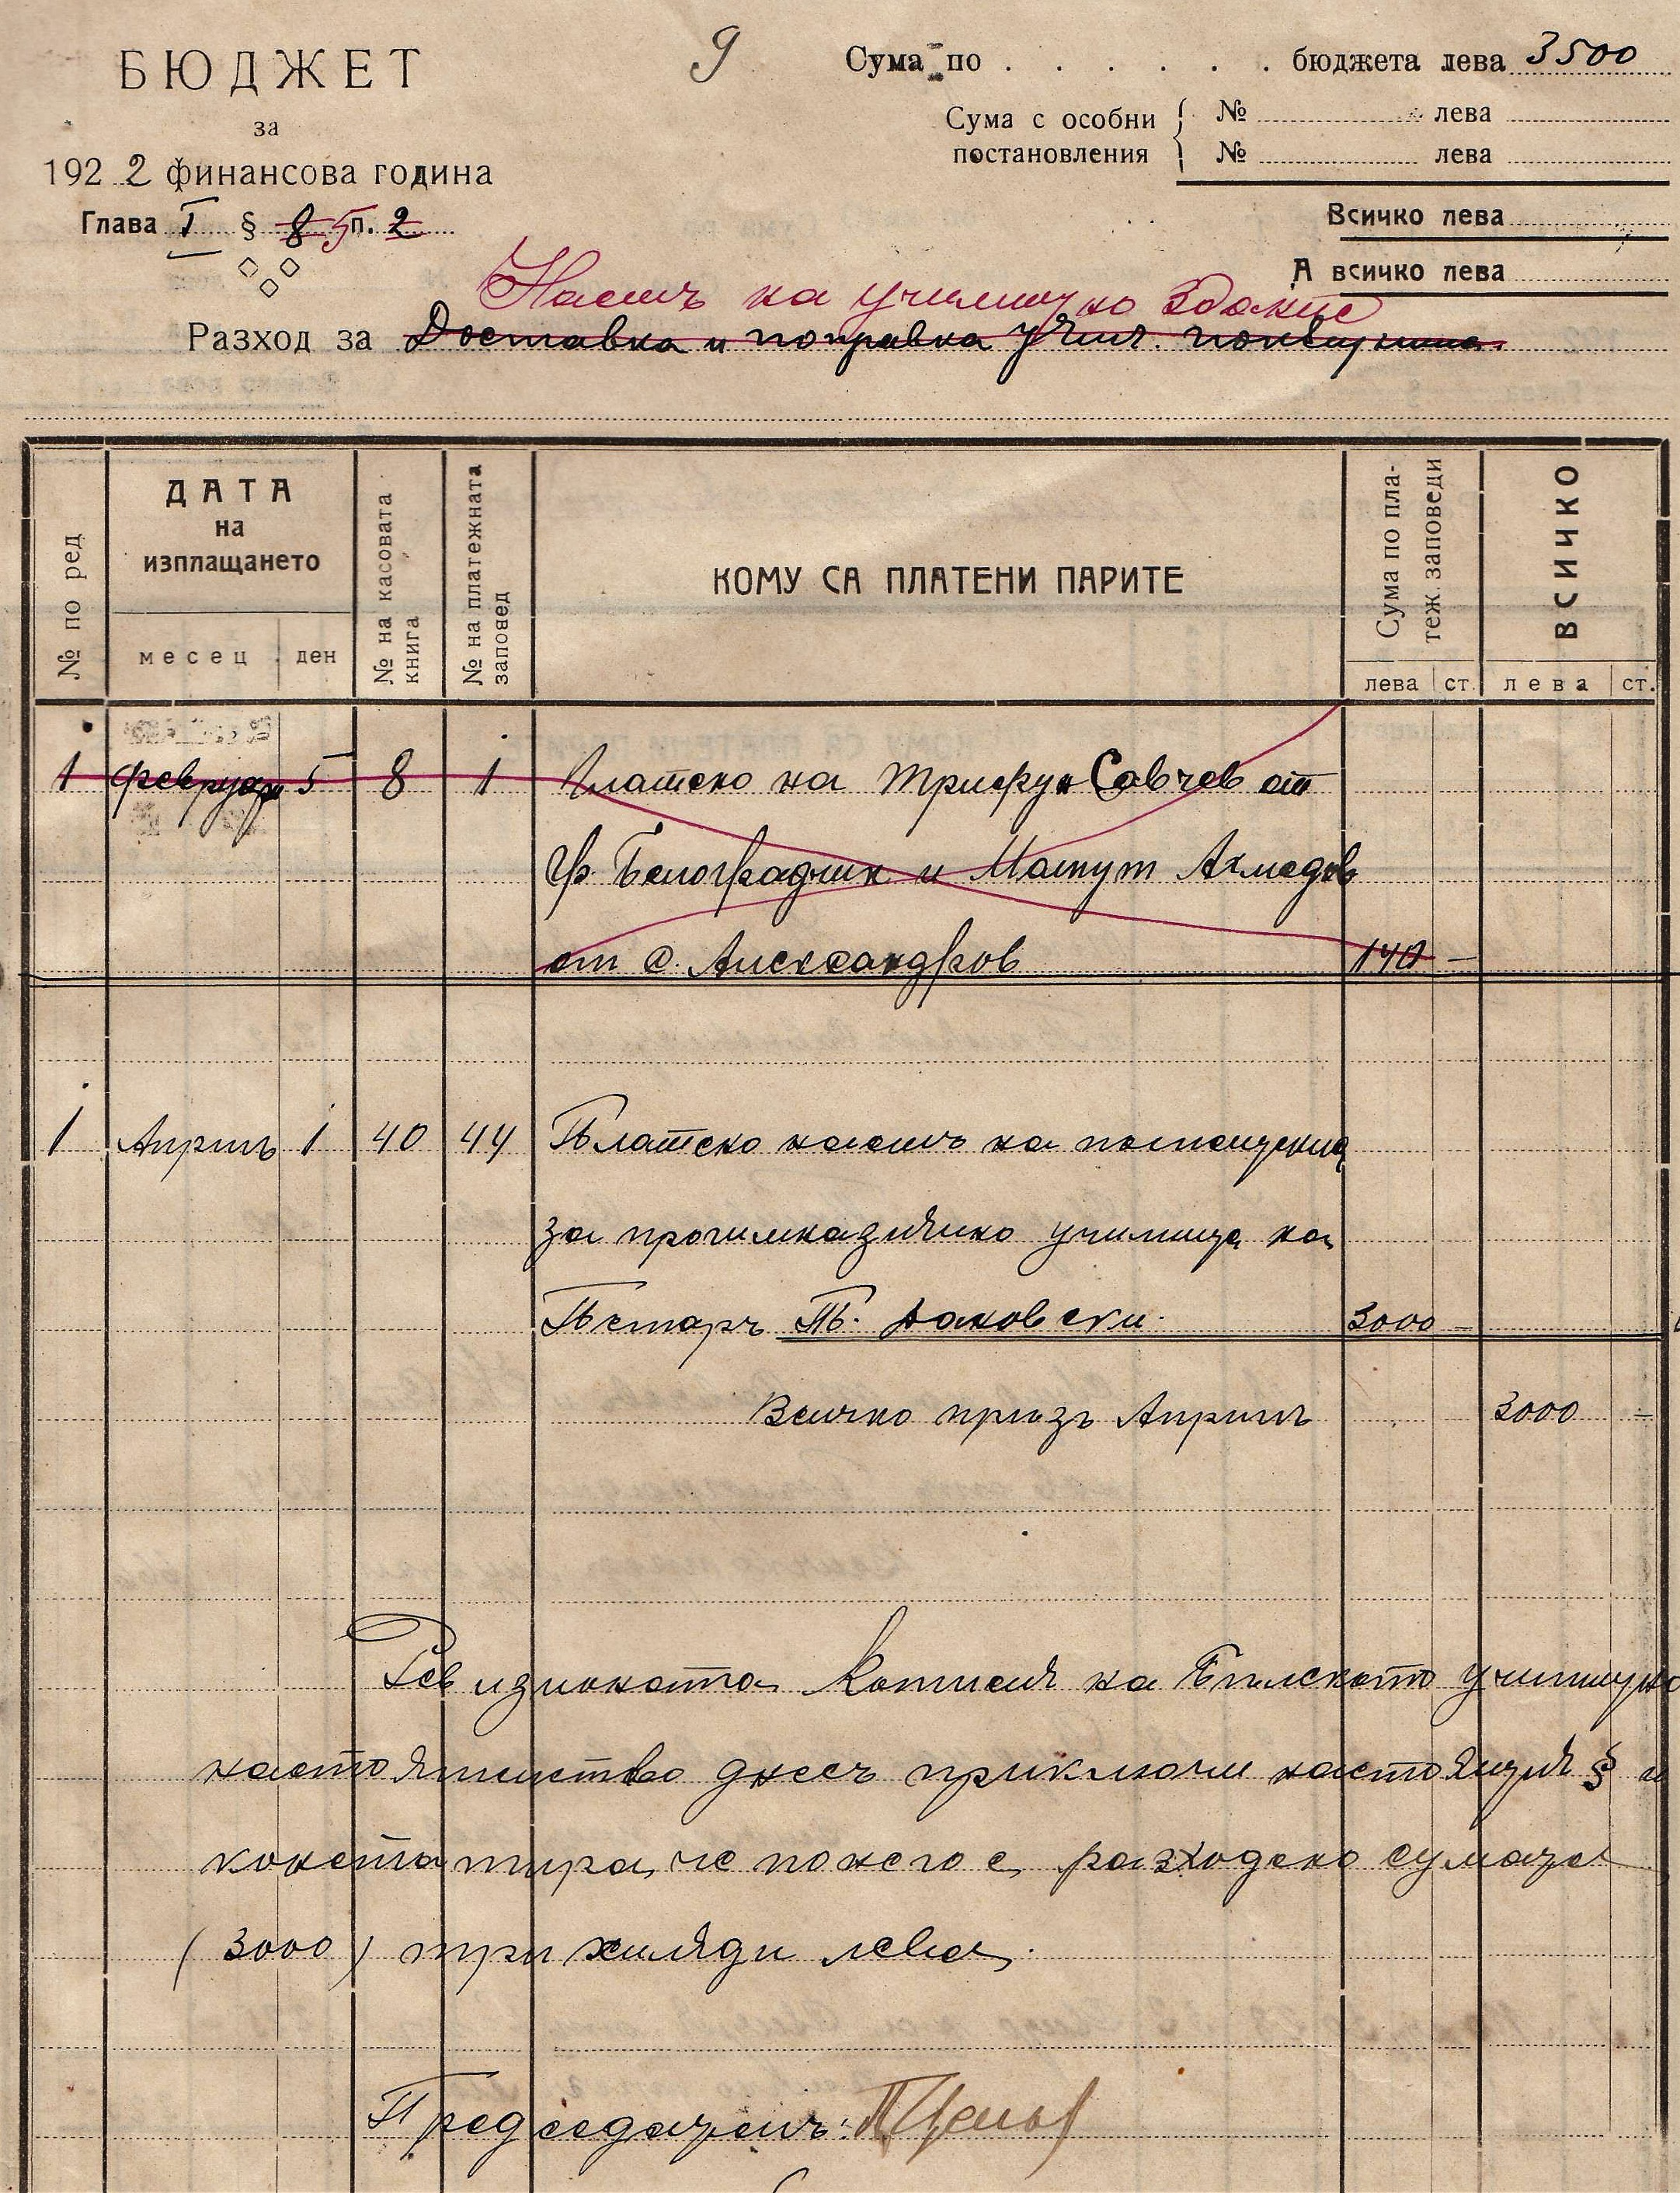 БЮДЖЕТ
за
1922 финансова година
Глава I § 8 5 п. 2
9
Сума по . . . . . . бюджета лева 3500
Сума с особни постановления
№ лева
№ лева
Всичко лева
А всичко лева
Наемъ на училищно здание
Разход за Доставка и поправка учил. покъщнина.
№ по ред
ДАТА
на
изплащането
месец ден
№ на касовата книга
№ на платежната заповед
КОМУ СА ПЛАТЕНИ ПАРИТЕ
Сума по пла-
теж. заповеди
лева ст.
ВСИЧКО
лева ст.
1 февруари 5 8 1 Платено на Трифун Савчев от
гр. Белоградчик и Махмут Ахмедов
от с. Александров 140 —
1 Априлъ 1 40 44 Платено наемъ на помещения
за прогимназиялно училище на
Петаръ П. Даковски. 3000 —
Всичко презъ Априлъ 3000 —
Ревизионата Комисия на училищно
настоятелство днесъ приключи настоящия § и
констатира, че по него е разходено сумата
(3000) три хиляди лева.
Председателъ: